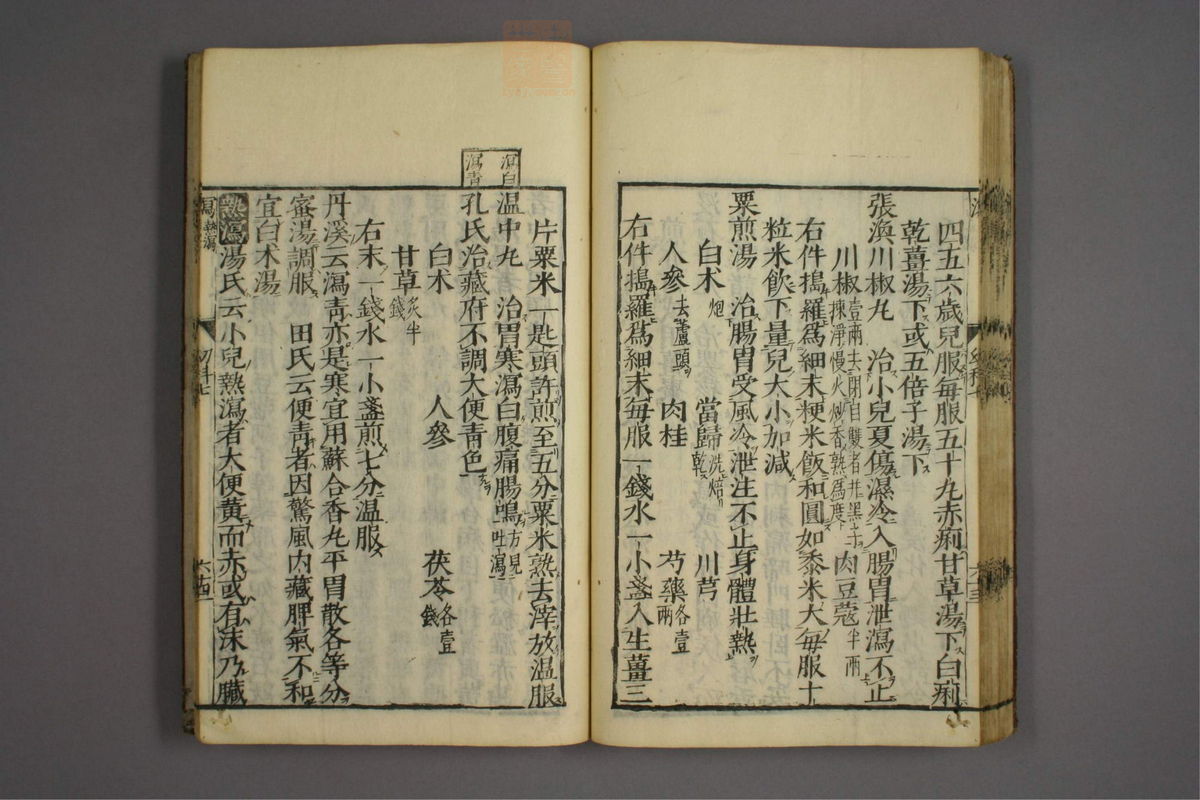 四五六歳兒服每服五十丸赤痢甘草湯下白痢
乾薑湯下或五倍子湯下
張渙川椒丸　治小兒夏傷濕冷入腸胃泄瀉不止
川椒壹兩去閉目雙者并黑子揀淨慢火炒香熟爲度　肉豆蔻半兩
右件搗羅爲細末粳米飯和圓如黍米大每服十
粒米飲下量兒大小加減
粟煎湯　治腸胃受風冷泄注不止身體壯熱
白术炮　當歸洗焙乾　川芎
人參去蘆頭　肉桂　芍藥各壹兩
右件搗羅爲細末每服一錢水一小盞入生薑三
片粟米一匙頭許煎至五分粟米熟去滓放温服
瀉白
温中丸　治胃寒瀉白腹痛腸鳴方見吐瀉
瀉青
孔氏治藏府不調大便青色
白术　人參　茯苓各壹錢
甘草炙半錢
右末一錢水一小盞煎七分温服
丹溪云瀉青亦是寒宜用蘇合香丸平胃散各等分
蜜湯調服　田氏云便青者因驚風内藏脾氣不和
宜白术湯
熱瀉湯氏云小兒熱瀉者大便黄而赤或有沫乃臓